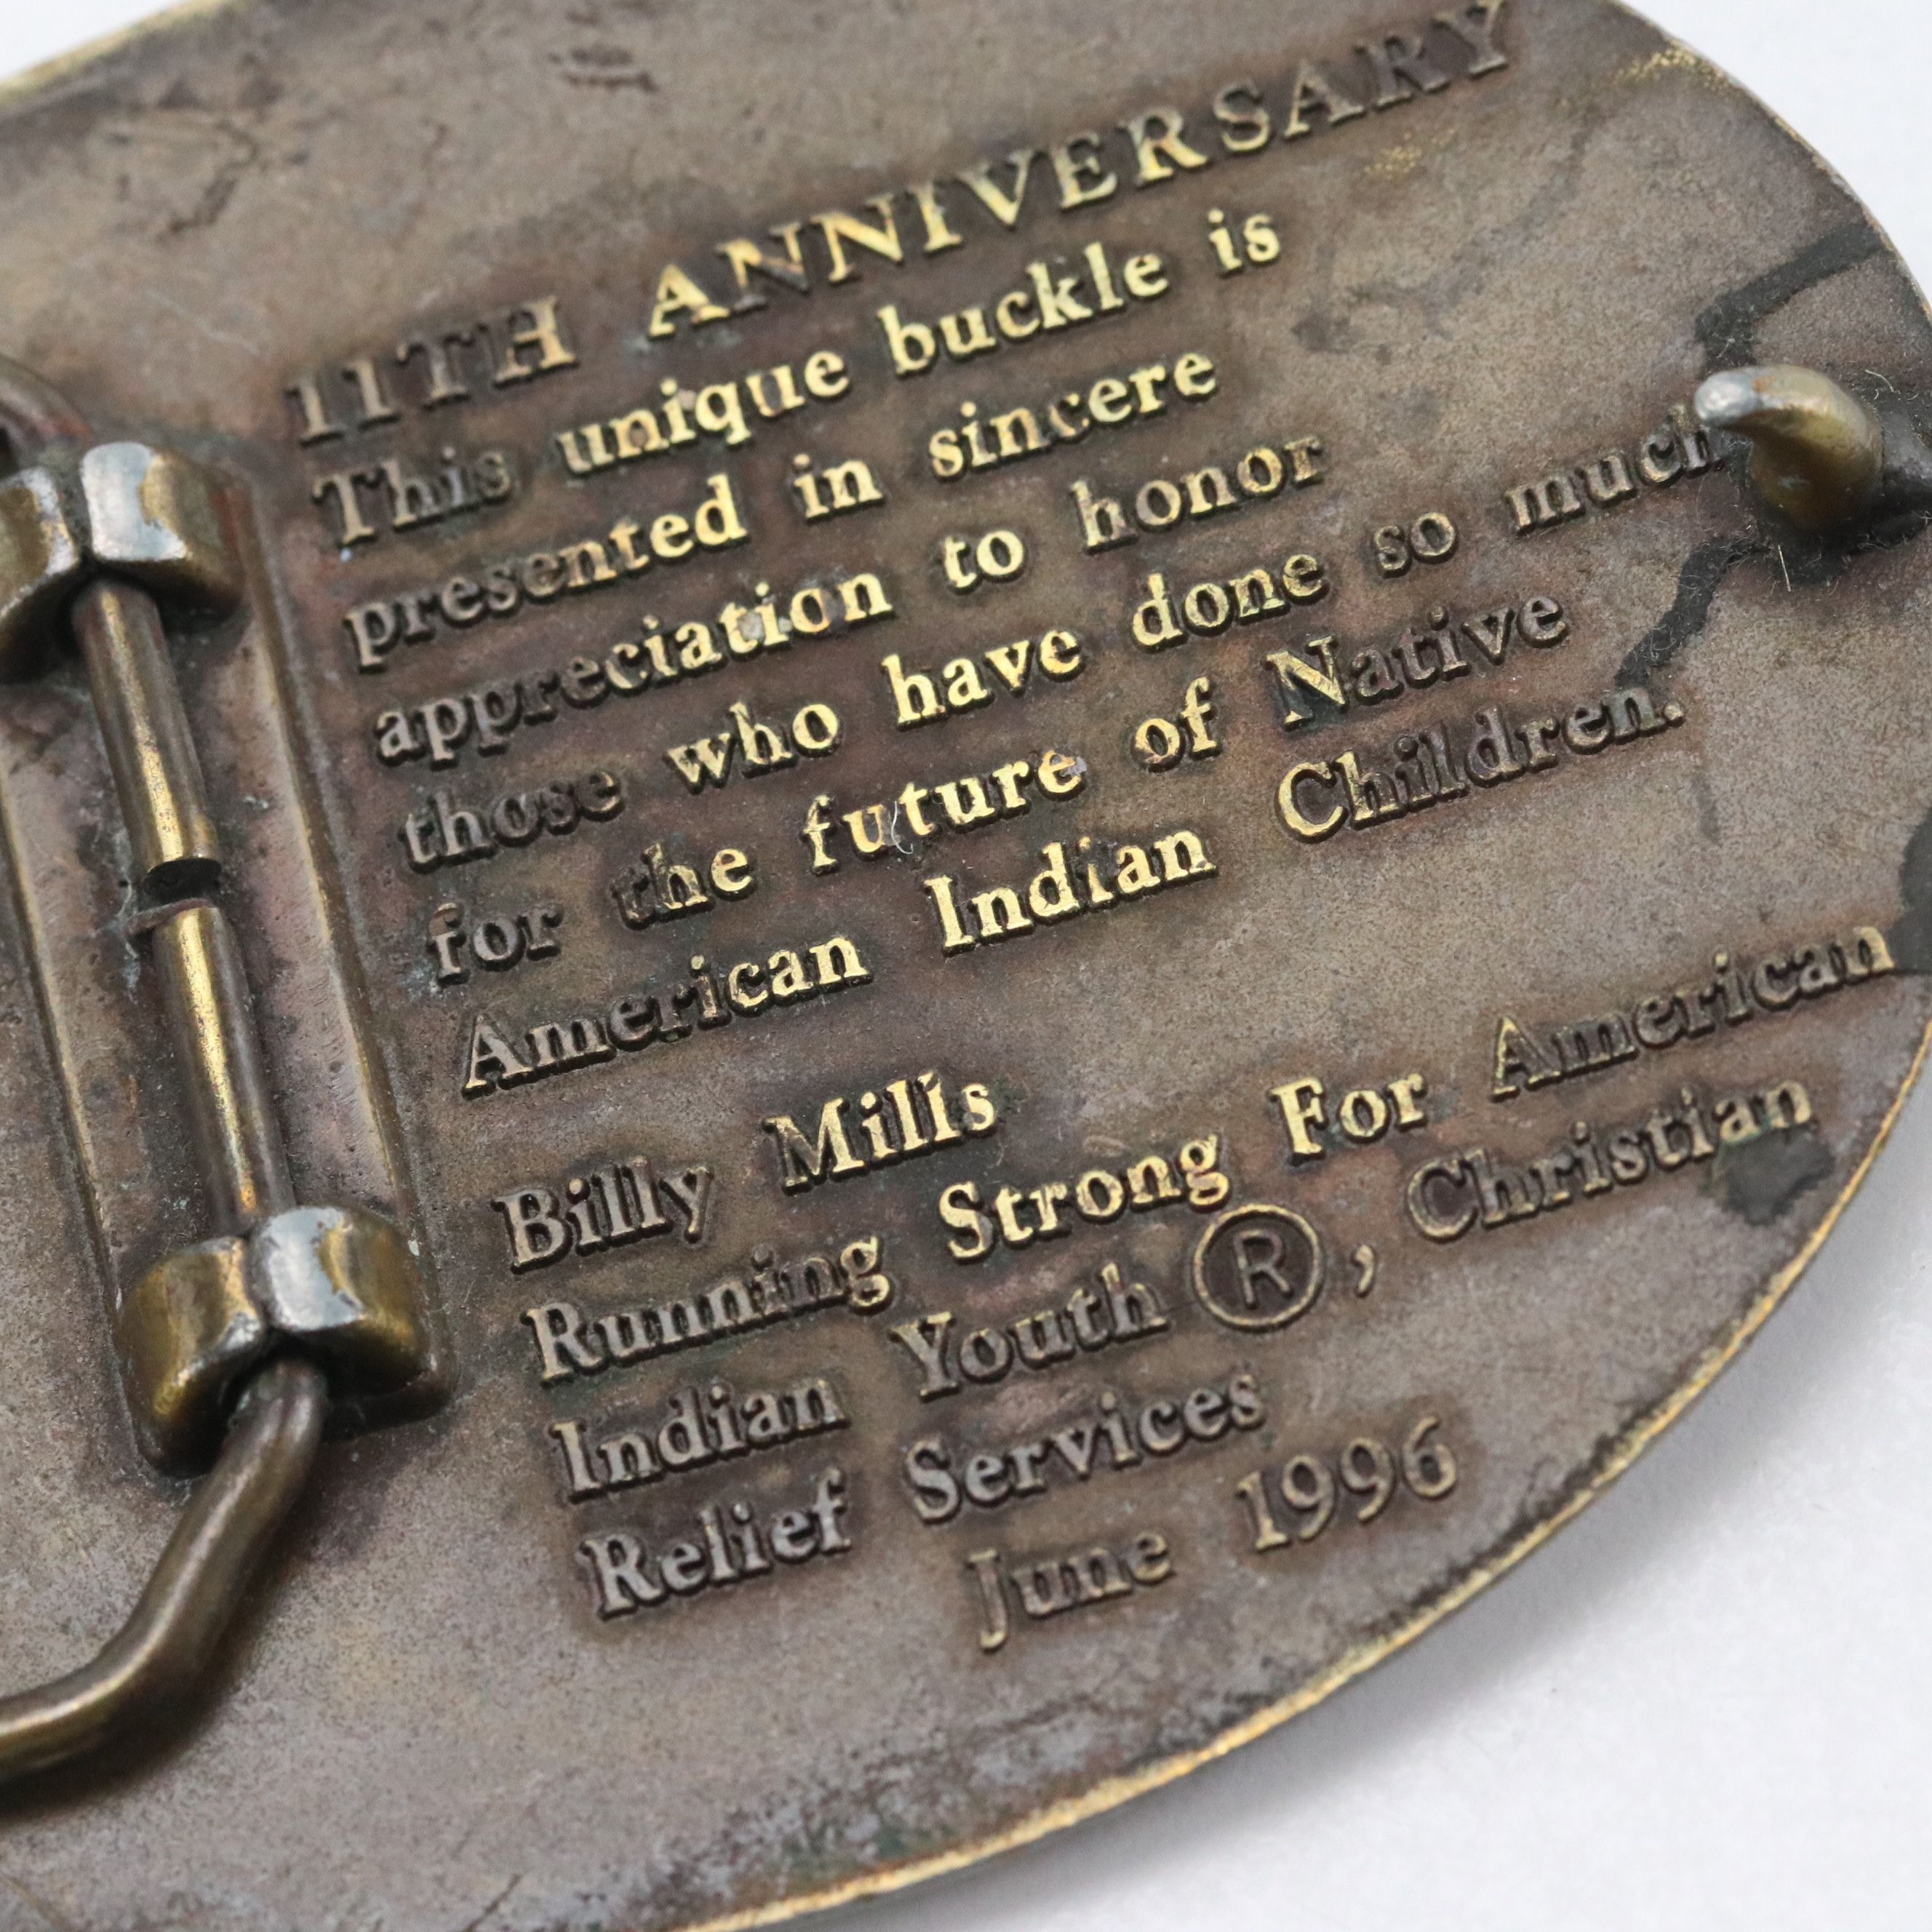 11TH ANNIVERSARY
This unique buckle is
presented in sincere
appreciation to honor
those who have done so much
for the future of Native
American Indian Children.
Billy Mills
Running Strong For American
Indian Youth ®, Christian
Relief Services
June 1996